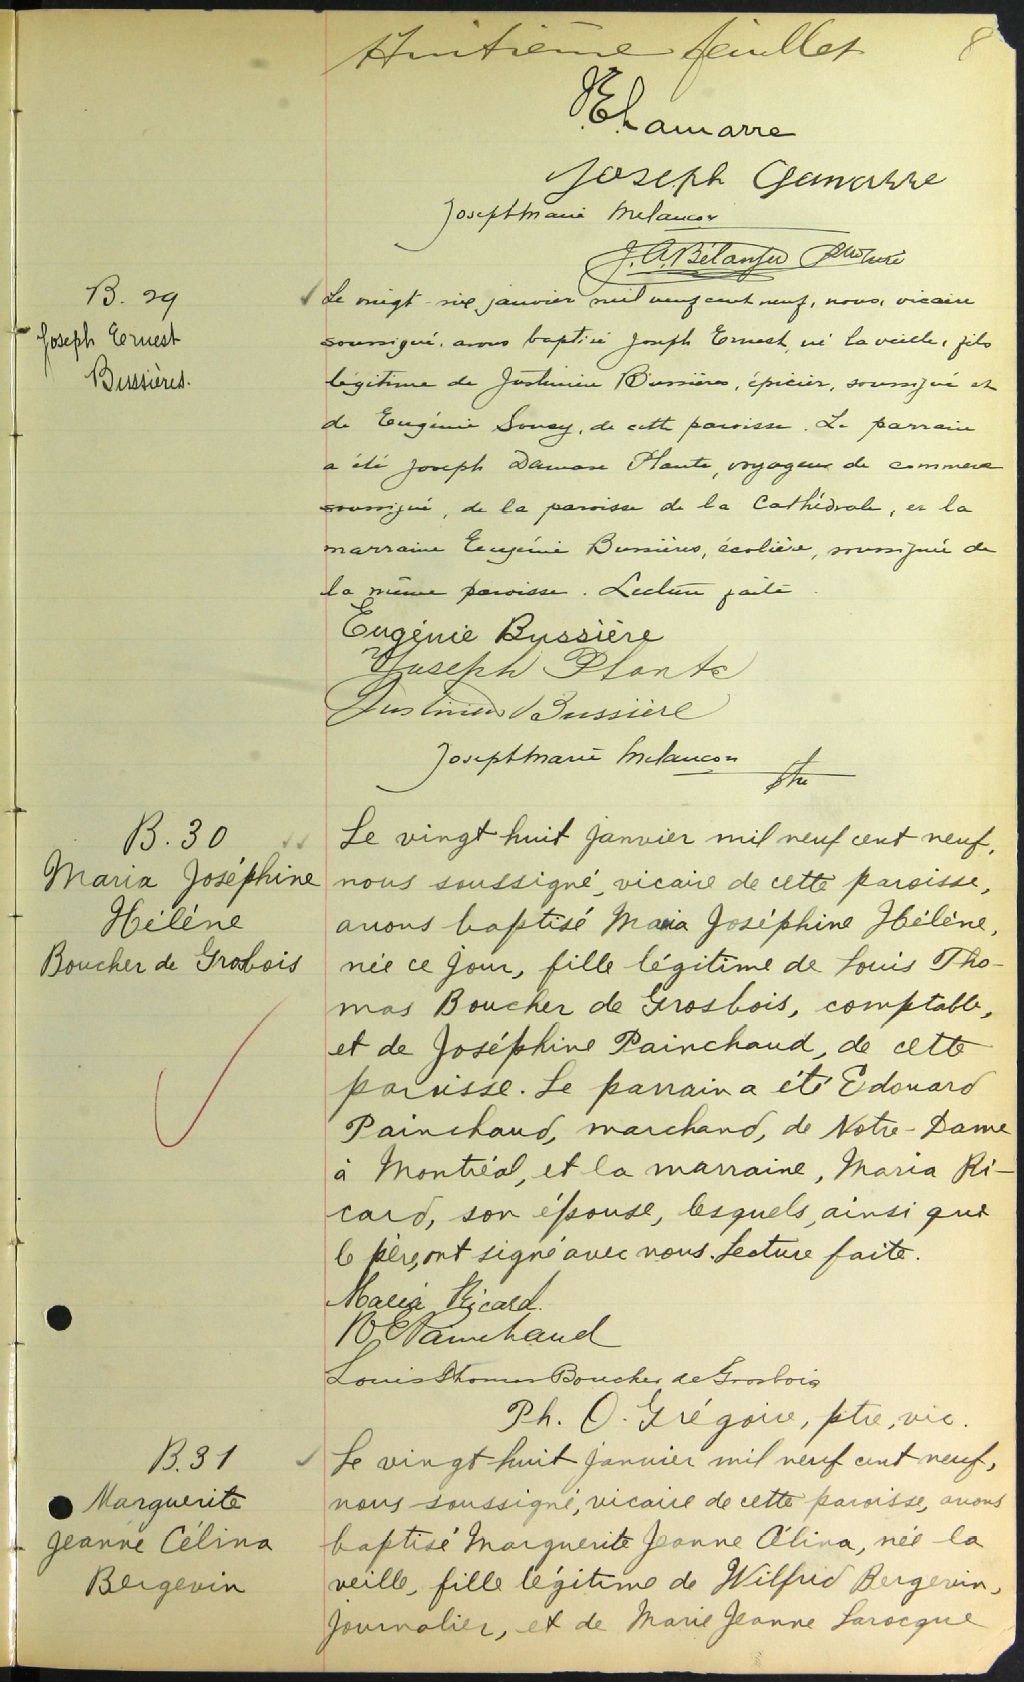 Huitième feuillet 8
Lamarre
Joseph Gamache
Joseph Marie Melançon
J. A. Bélanger Ptre Curé
B. 29
Joseph Ernest
Bussières.
Le vingt-six janvier mil neuf cent neuf, nous, vicaire
soussigné, avons baptisé Joseph Ernest, né la veille, fils
légitime de Justinien Bussières, épicier, soussigné et
de Eugénie Soucy, de cette paroisse. Le parrain
a été Joseph Damase Plante, voyageur de commerce
soussigné, de la paroisse de la Cathédrale, et la
marraine Eugénie Bussières, écolière, soussignée de
la même paroisse. Lecture faite.
Eugénie Bussière
Joseph Plante
Justinien Bussière
Joseph Marie Melançon ptre
B. 30
Maria Joséphine
Hélène
Boucher de Grosbois
Le vingt huit janvier mil neuf cent neuf,
nous soussigné, vicaire de cette paroisse,
avons baptisé Maria Joséphine Hélène,
née ce jour, fille légitime de Louis Tho-
mas Boucher de Grosbois, comptable,
et de Joséphine Painchaud, de cette
paroisse. Le parrain a été Edouard
Painchaud, marchand, de Notre-Dame
à Montréal, et la marraine, Maria Ri-
card, son épouse, lesquels, ainsi que
le père, ont signé avec nous. Lecture faite.
Maria Ricard.
Painchaud
Louis Thomas Boucher de Grosbois
Ph. O. Grégoire, ptre, vic.
B. 31
Marguerite
Jeanne Célina
Bergevin
Le vingt huit janvier mil neuf cent neuf,
nous soussigné, vicaire de cette paroisse, avons
baptisé Marguerite Jeanne Célina, née la
veille, fille légitime de Wilfrid Bergevin,
journalier, et de Marie Jeanne Larocque